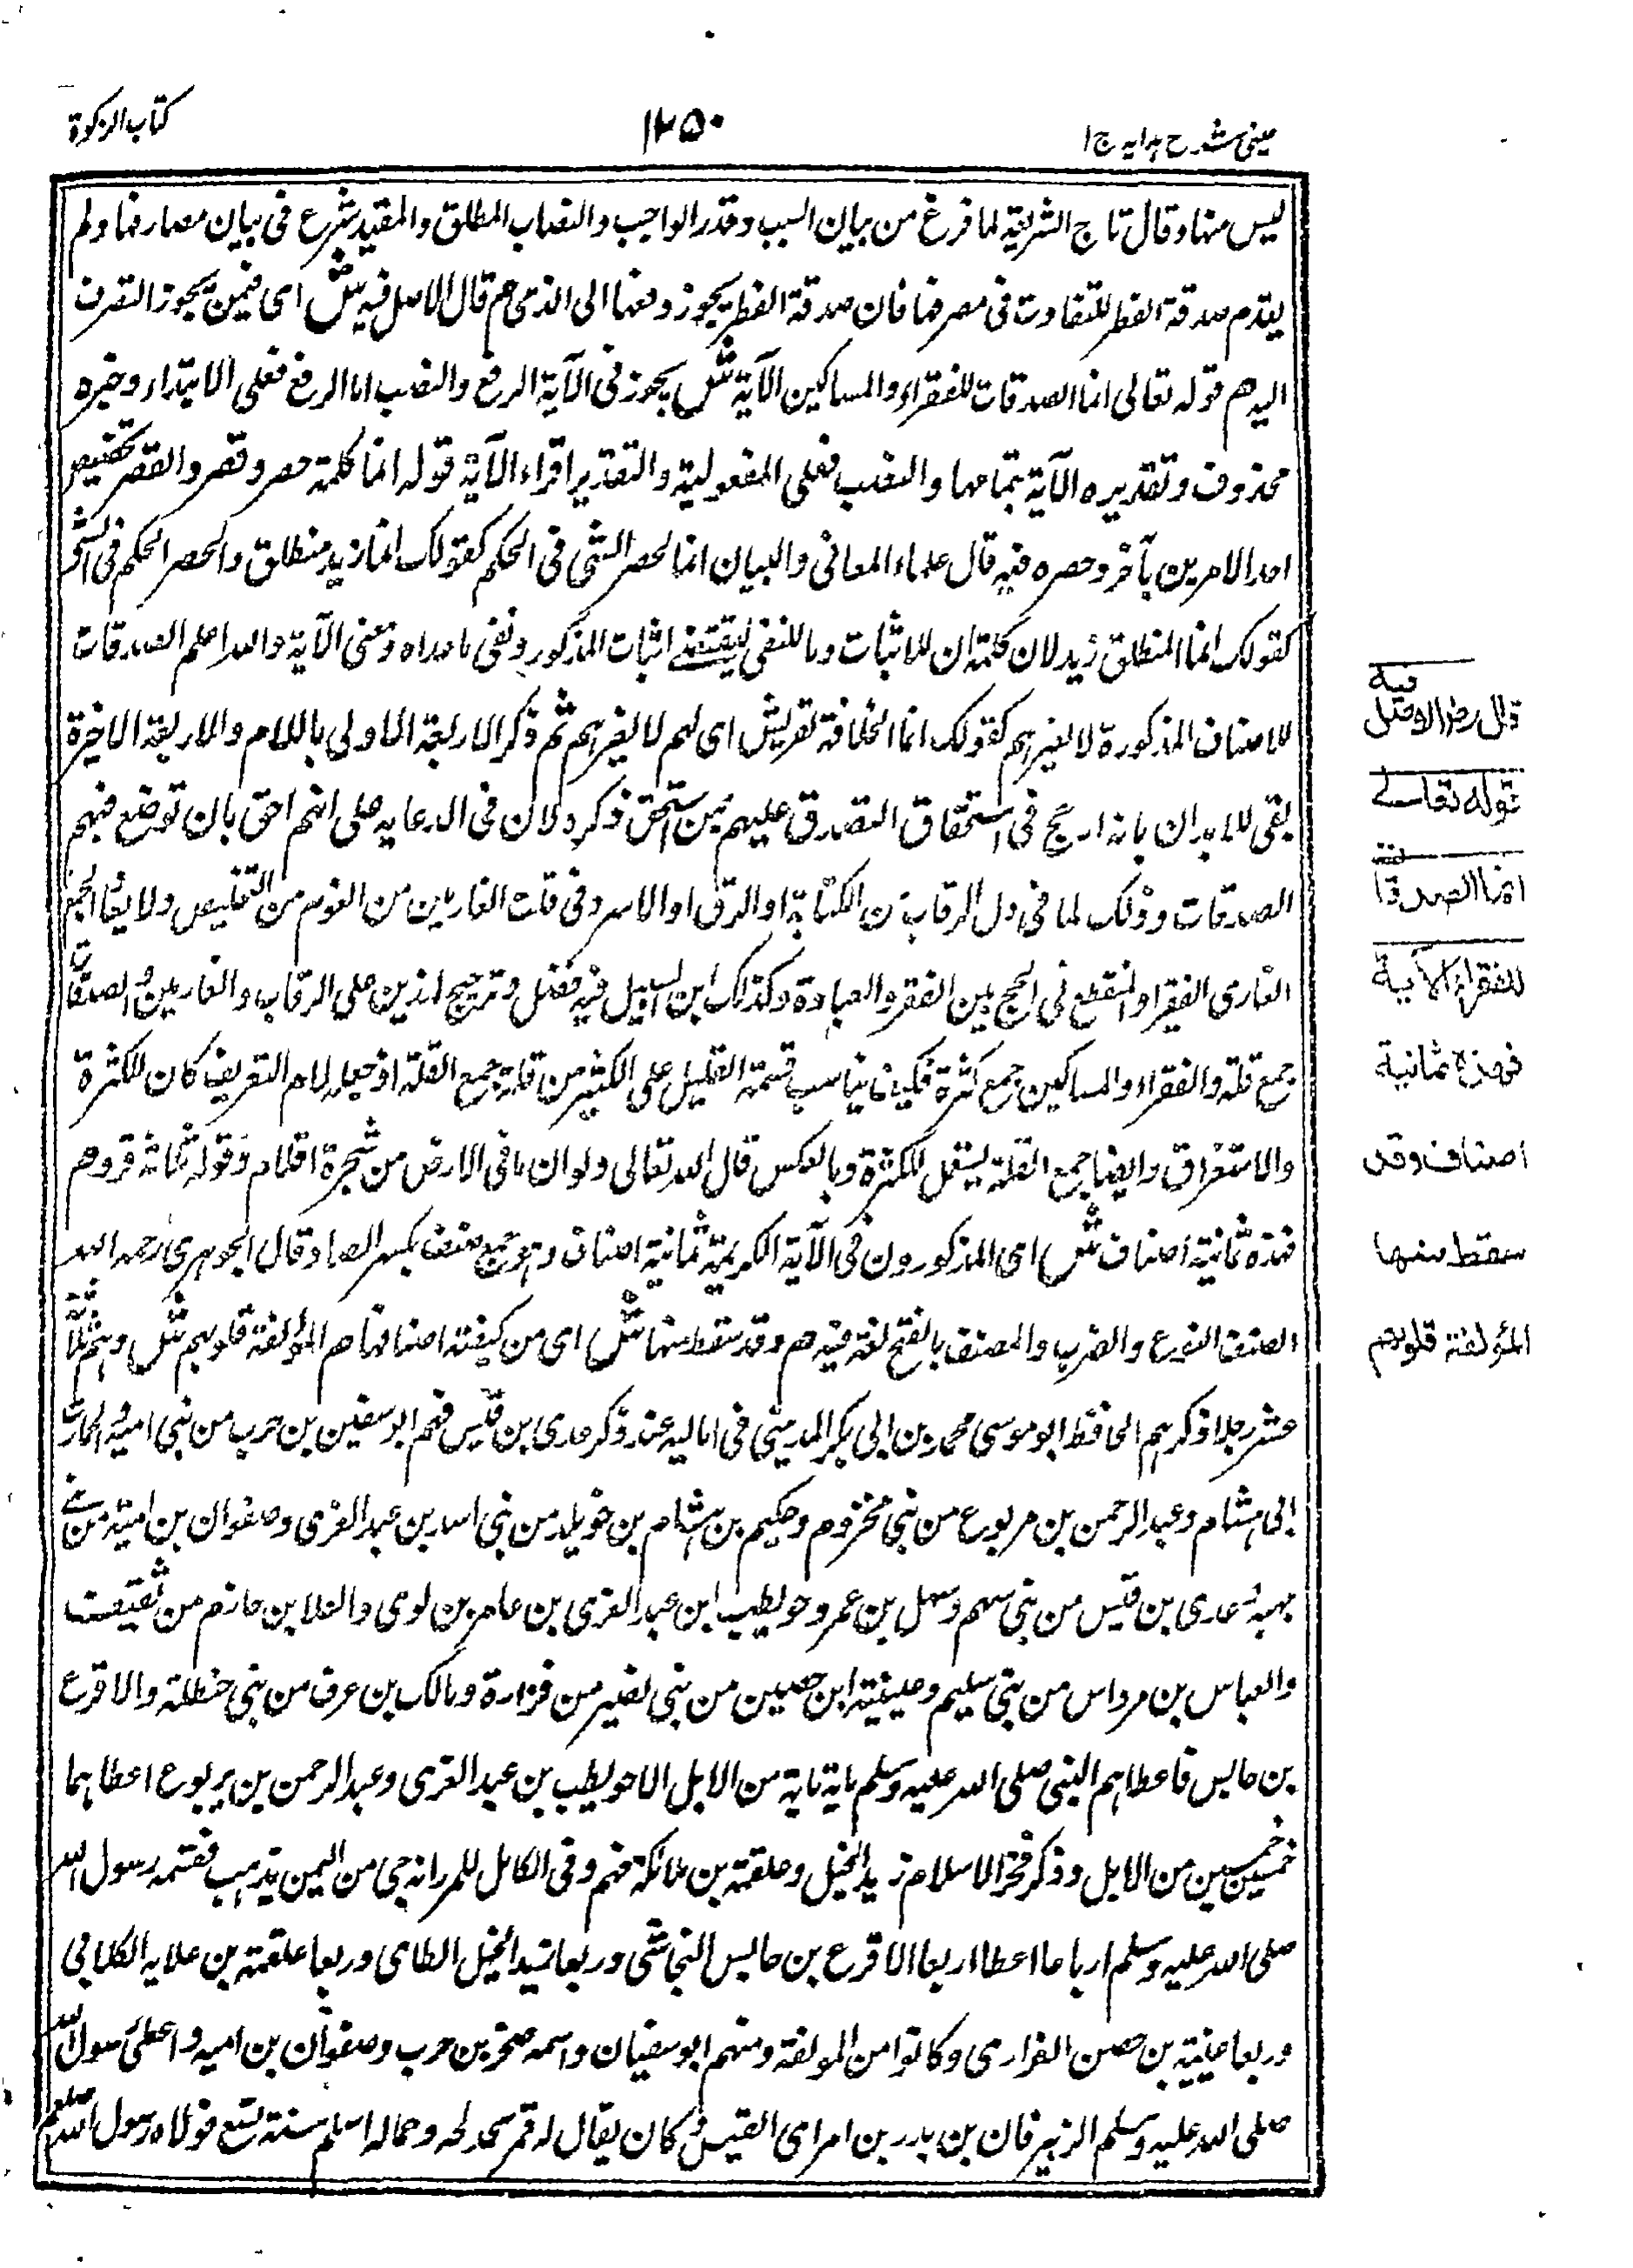 عینی شرح ہدایہ ج ۱
۱۲۵۰
كتاب الزكوة
ليس منها وقال تاج الشريعة لما فرغ من بيان السبب وقدر الواجب والنصاب المطلق والمقيد شرع في بيان مصارفها ولم
يقدم صدقة الفطر للتفاوت في مصرفها فان صدقة الفطر يجوز دفعها الى الذمي م قال الاصل فيه ش اى فيمن يجوز التصرف
اليه م قوله تعالى انما الصدقات للفقراء والمساكين الآية ش يجوز في الآية الرفع والنصب اما الرفع فعلى الابتداء وخبره
محذوف وتقديره الآية بتمامها والنصب فعلى المفعولية والتقدير اقراء الآية قوله انما كلمة حصر وقصر والقصر تخصيص
احد الامرين بآخر وحصره فيه قال علماء المعانى والبيان انما لحصر الشى فى الحكم كقولك انما زيد منطلق والحصر الحكم فى الشى
كقولك انما المنطلق زيد لان كلمة ان للاثبات وما للنفى ليقتضے اثبات المذكور ونفى ما عداه ومعنى الآية والله اعلم الصدقات
للاصناف المذكورة لا لغيرهم كقولك انما الخلافة لقريش اى لهم لا لغيرهم ثم ذكر الاربعة الاولى باللام والاربعة الاخيرة
بفى للايذان بانه ارجح فى استحقاق التصدق عليهم ممن استحق ذكره لان فى الدعايه على انهم احق بان توضع فيهم
الصدقات وذلك لما فى ذل الرقاب من الكتابة او الرق او الاسر وفى فك الغارمين من الغرم من التخليص ولا يقا الجمع
الغازى الفقير او المنقطع فى الحج بين الفقر والعبادة وكذلك ابن السبيل فيه فضل وترجيح لهذين على الرقاب والغارمين والصدقات
جمع قلة والفقراء والمساكين جمع كثرة فكيف يناسب قسمة القليل على الكثير من قلة جمع القلة اذ دخله لام التعريف كان للكثرة
والاستغراق وايضا جمع القلة يستعمل للكثرة وبالعكس قال الله تعالى ولو ان ما فى الارض من شجرة اقلام وقوله ثلاثة قروء م
فهذه ثمانية اصناف ش اى المذكورون فى الآية الكريمة ثمانية اصناف وهو جمع صنف بكسر الصاد وقال الجوهرى رحمه الله
الصنف النوع والضرب والصنف بالفتح لغة فيه م وقد سقط منها ش اى من كيفية اصنافها م المؤلفة قلوبهم ش وهم ثلثة
عشر رجلا ذكرهم الحافظ ابو موسى محمد بن ابى بكر المدينى فى اماليه عند ذكر عدى ابن قيس فهم ابو سفين بن حرب من بنى امية والحارث
ابى هشام وعبد الرحمن بن مربوع من بنى مخزوم وحكيم بن هشام بن خويلد من بنى اسد بن عبد العزى وصفوان بن امية من بنے
بهبة عدى بن قيس من بنى سهم وسهل بن عمرو حويطب ابن عبد العزى بن عامر بن لوى والعلا بن حازم من ثقيف
والعباس بن مرداس من بنى سليم وعيينة ابن حصين من بنى نضير من فزارة ومالك بن عوف من بنى حنظلة والاقرع
بن حابس فاعطاهم النبى صلى الله عليه وسلم ماية ماية من الابل الا حويطب بن عبد العزى وعبد الرحمن بن يربوع اعطاهما
خمسين خمسين من الابل وذكر فخر الاسلام زيد الخيل وعلقمة بن علاثة منهم وفى الكامل للمبرد انه جى من اليمن بذهب فقسمه رسول الله
صلى الله عليه وسلم ارباعا اعطا ربعا الاقرع بن حابس النجاشى وربعا زيد الخيل الطاى وربعا علقمة بن علايه الكلابى
وربعا عيينة بن حصن الفزارى وكانوا من المولفة ومنهم ابو سفيان واسمه صخر بن حرب وصفوان بن اميه واعطى رسول الله
صلى الله عليه وسلم الزبرقان بن بدر بن امراى القيس وكان يقال له قمر نجد لحه وجماله اسلم سنة تسع فولاه رسول الله صلعم
قال رضـ الاصل فيه
قوله تعالے
انما الصدقات
للفقراء الآية
فهذه ثمانية
اصناف وقد
سقط منها
المؤلفة قلوبهم